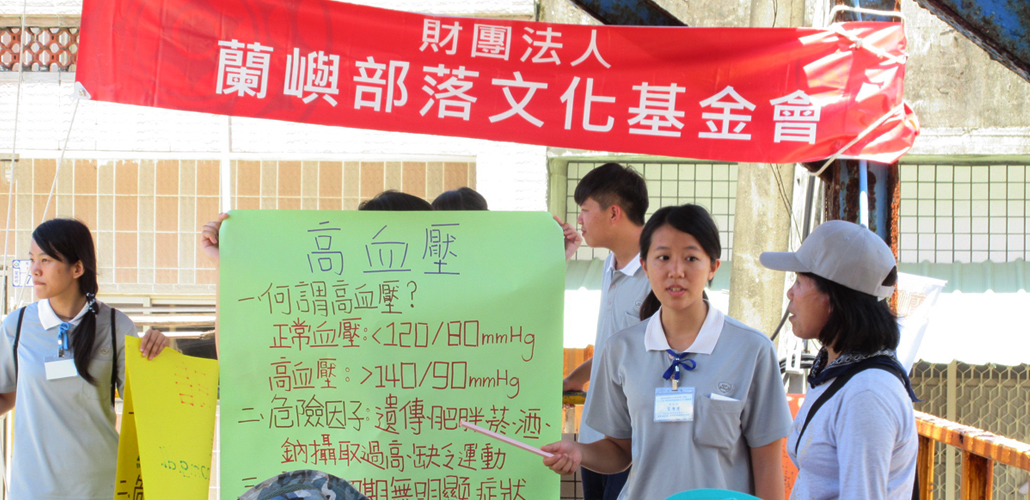 財團法人
蘭嶼部落文化基金會
高血壓
一.何謂高血壓?
正常血壓:<120/80mmHg
高血壓:>140/90mmHg
二、危險因子:遺傳、肥胖、菸、酒、
鈉攝取過高、缺乏運動
期無明顯症狀
二